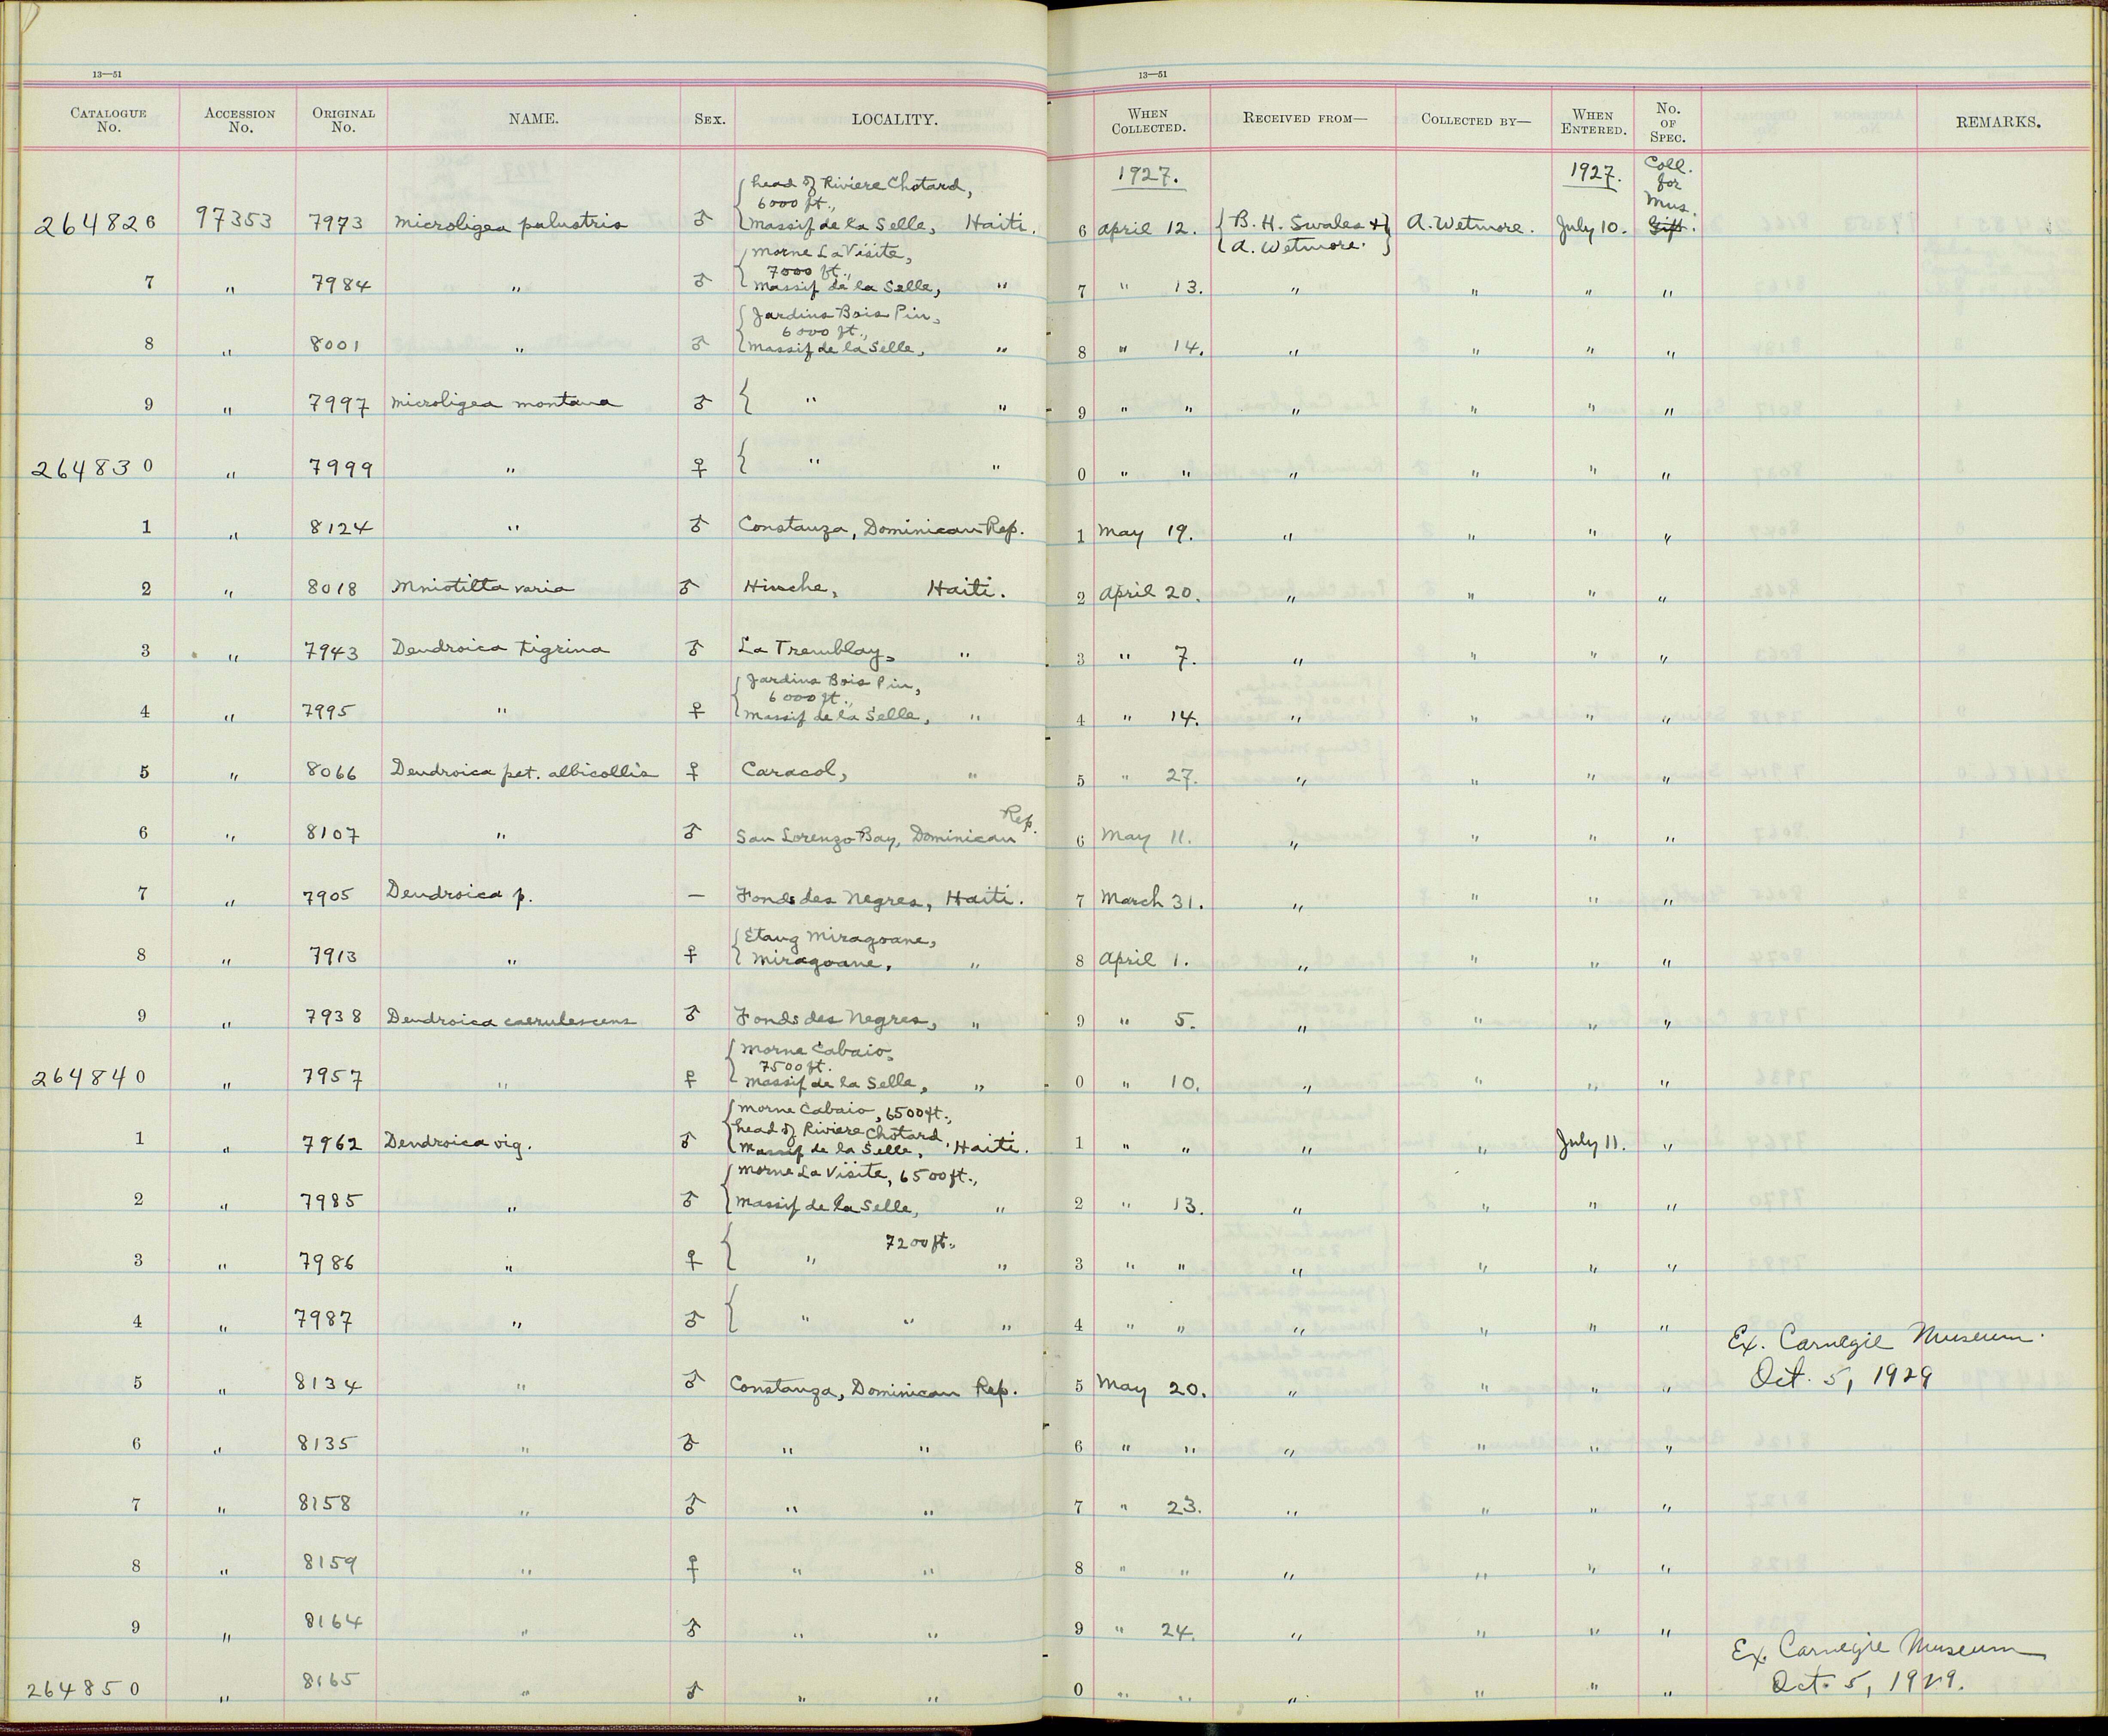 13—51
13—51
CATALOGUE No. ACCESSION No. ORIGINAL No. NAME. SEX. LOCALITY. WHEN COLLECTED. RECEIVED FROM— COLLECTED BY— WHEN ENTERED. No. OF SPEC. REMARKS.
1927. 1927. Coll. for Mus.
head of Riviere Chotard,
6000 ft.,
264826 97353 7973 Microligea palustris ♂ Massif de la Selle, Haiti. 6 April 12. B. H. Swales & A. Wetmore. A. Wetmore. July 10. Gift.
Morne La Visite,
7000 ft.,
7 " 7984 " ♂ Massif de la Selle, " 7 " 13. " " " "
Jardins Bois Pin,
6000 ft.,
8 " 8001 " ♂ Massif de la Selle, " 8 " 14. " " " "
9 " 7997 Microligea montana ♂ " " 9 " " " " " "
264830 " 7999 " ♀ " " 0 " " " " " "
1 " 8124 " ♂ Constanza, Dominican Rep. 1 May 19. " " " "
2 " 8018 Mniotilta varia ♂ Hinche, Haiti. 2 April 20. " " " "
3 " 7943 Dendroica tigrina ♂ La Tremblay, " 3 " 7. " " " "
Jardins Bois Pin,
6000 ft.,
4 " 7995 " ♀ Massif de la Selle, " 4 " 14. " " " "
5 " 8066 Dendroica pet. albicollis ♀ Caracol, " 5 " 27. " " " "
6 " 8107 " ♂ San Lorenzo Bay, Dominican Rep. 6 May 11. " " " "
7 " 7905 Dendroica p. — Fonds des Negres, Haiti. 7 March 31. " " " "
Etang Miragoane,
8 " 7913 " ♀ Miragoane, " 8 April 1. " " " "
9 " 7938 Dendroica caerulescens ♂ Fonds des Negres, " 9 " 5. " " " "
Morne Cabaio,
7500 ft.
264840 " 7957 " ♀ Massif de la Selle, " 0 " 10. " " " "
Morne Cabaio, 6500 ft.,
head of Riviere Chotard,
1 " 7962 Dendroica vig. ♂ Massif de la Selle, Haiti. 1 " " " " July 11. "
Morne La Visite, 6500 ft.,
2 " 7985 " ♂ Massif de la Selle, " 2 " 13. " " " "
7200 ft.,
3 " 7986 " ♀ " " 3 " " " " " "
4 " 7987 " ♂ " " " 4 " " " " " "
Ex. Carnegie Museum.
5 " 8134 " ♂ Constanza, Dominican Rep. 5 May 20. " " " " Oct. 5, 1929
6 " 8135 " ♂ " " 6 " " " " " "
7 " 8158 " ♂ " " 7 " 23. " " " "
8 " 8159 " ♀ " " 8 " " " " " "
9 " 8164 " ♂ " " 9 " 24. " " " "
Ex. Carnegie Museum
264850 " 8165 " ♂ " " 0 " " " " " " Oct. 5, 1929.